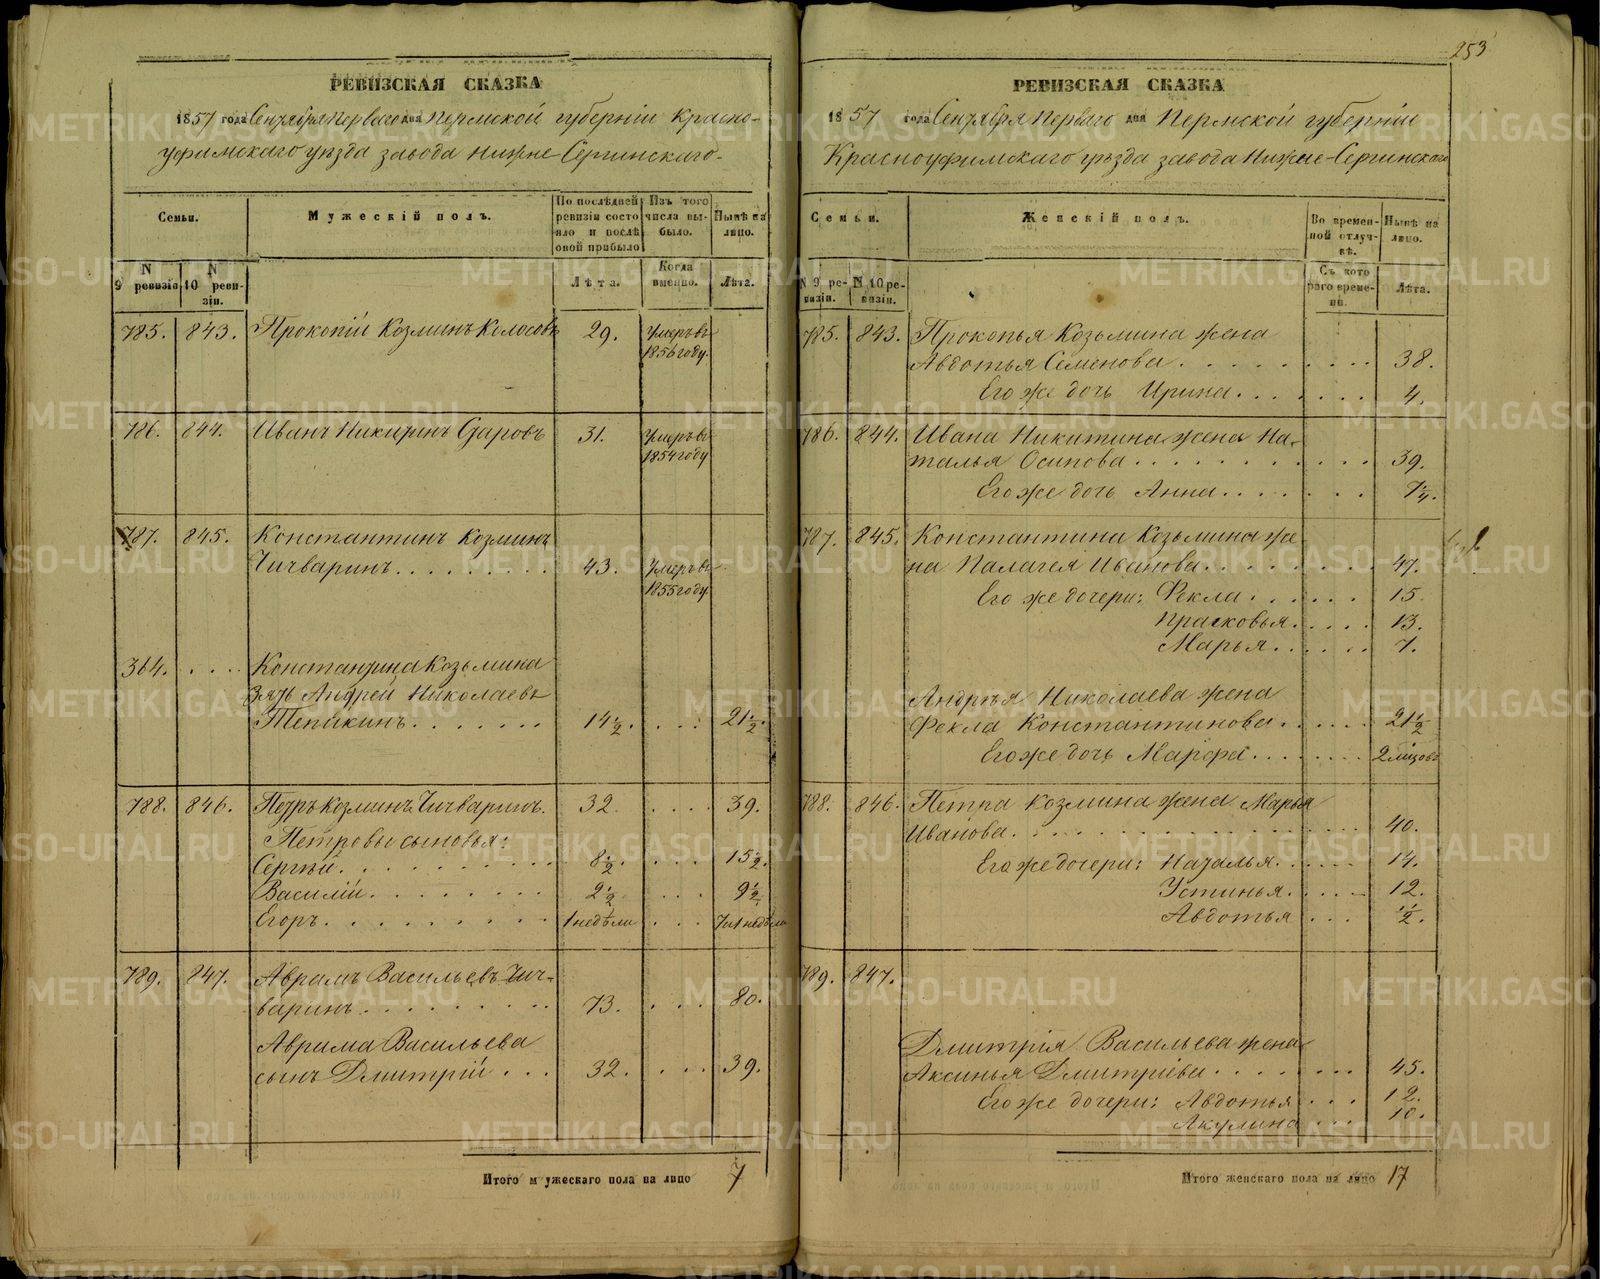 253
РЕВИЗСКАЯ СКАЗКА
1857 года Сентября перваго дня Пермской губерніи Красно-
уфимскаго уѣзда завода Нижне-Сергинскаго.
Семьи.
Мужескій полъ.
По послѣдней ревизіи состояло и послѣ оной прибыло
Изъ того числа выбыло.
Нынѣ на лицо.
N 9 ревизіи
N 10 ревизіи.
Лѣта.
Когда именно.
Лѣта.
785. 843. Прокопій Козминъ Колосовъ 29. Умеръ въ
1856 году.
786. 844. Иванъ Никитинъ 31. Умеръ въ
1854 году
787. 845. Константинъ Козминъ
Чичваринъ . . . . . . . . . 43. Умеръ въ
1855 году.
364. . . . Константина Козьмина
зять Андрей Николаевъ
Тепикинъ . . . . . . . 14 1/2. . . . 21 1/2.
788. 846. Петръ Козминъ Чичваринъ. 32 . . . . 39.
Петровы сыновья:
Сергѣй . . . . . . . . . 8 1/2. . . . 15 1/2.
Василій . . . . . . . . 2 1/2 . . . 9 1/2.
Егоръ . . . . . . . . . 1 недѣли . . . 7 и 1 недѣли
789. 847. Аврамъ Васильевъ Чич-
варинъ . . . . . . . . . 73. . . . 80.
Аврама Васильева
сынъ Дмитрій . . . 32. . . . 39.
Итого мужескаго пола на лицо 7
РЕВИЗСКАЯ СКАЗКА
1857 года Сентября перваго дня Пермской губерніи
Красноуфимскаго уѣзда завода Нижне-Сергинскаго
Семьи.
Женскій полъ.
Во временной отлучкѣ.
Нынѣ на лицо.
N 9 ревизіи.
N 10 ревизіи.
Съ котораго времени.
Лѣта.
785. 843. Прокопья Козьмина жена
Авдотья Семенова . . . . . . . . 38.
Его же дочь Ирина . . . . . . 4.
786. 844. Ивана Никитина жена На-
талья Осипова . . . . . . . . . . . 39.
Его же дочь Анна . . . . . .
787. 845. Константина Козьмина же-
на Палагея Иванова . . . . . . . . . 47.
Его же дочери: Фекла . . . . . . 15
Прасковья . . . . . 13.
Марья . . . . . . 7.
Андрѣя Николаева жена
Фекла Константинова . . . . . . 21 1/2
Его же дочь Марфа . . . . . . . 2 місцовъ
788. 846. Петра Козмина жена Марья
Иванова . . . . . . . . . . . . . . . . . 40.
Его же дочери: Наталья . . . . . 14.
Устинья . . . . . 12.
Авдотья . . . 1/2.
789. 847.
Дмитрія Васильева жена
Аксинья Дмитріева . . . . . . . . 45.
Его же дочери: Авдотья . . . 12.
Акулина . . . 10.
Итого женскаго пола на лицо 17
METRIKI.GASO-URAL.RU